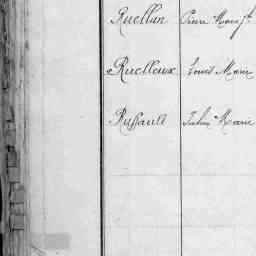 Ruellan Pierre
Ruelleux Louis Marie
Ruffault Julien Marie